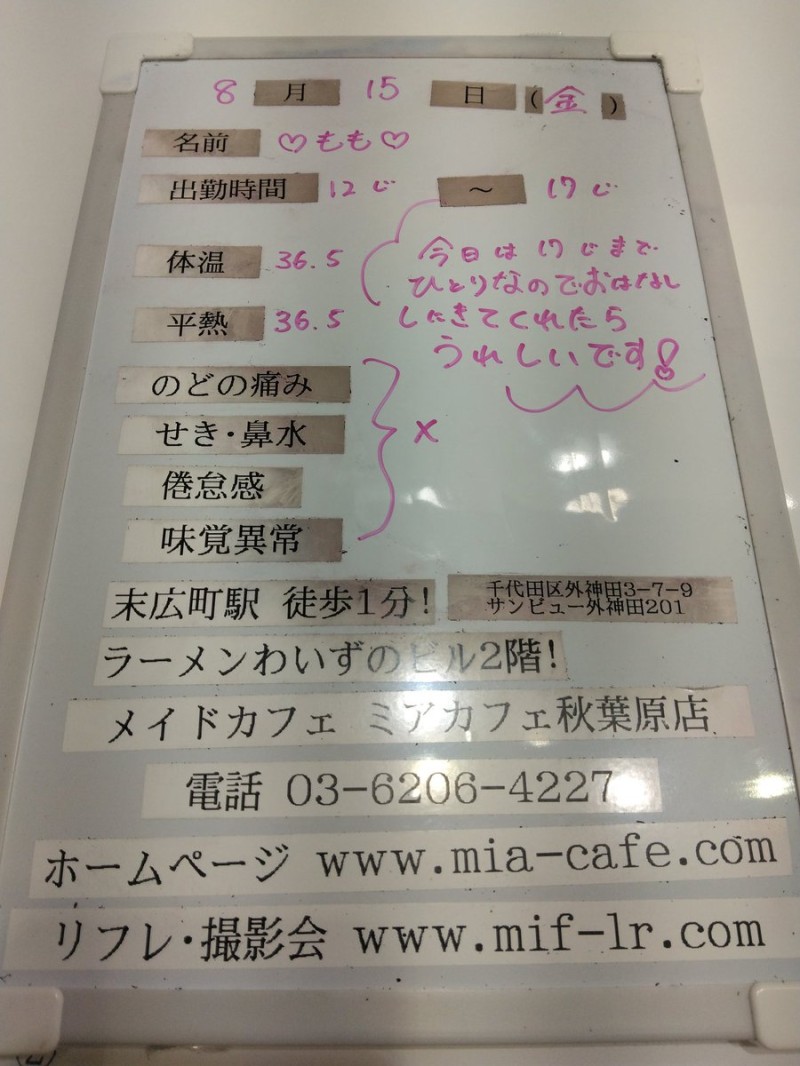 8月15日(金)
名前 ♡もも♡
出勤時間 12じ ～ 17じ
体温 36.5
平熱 36.5
今日は17じまで
ひとりなのでおはなし
しにきてくれたら
うれしいです!
のどの痛み
せき・鼻水
倦怠感
味覚異常
×
末広町駅 徒歩1分!
千代田区外神田3-7-9
サンビュー外神田201
ラーメンわいずのビル2階!
メイドカフェ ミアカフェ秋葉原店
電話 03-6206-4227
ホームページ www.mia-cafe.com
リフレ・撮影会 www.mif-lr.com